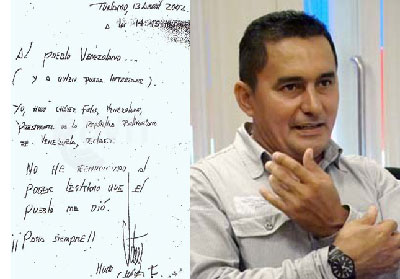 Turiamo, 13 Abril 2002
a las 14:45
Al pueblo Venezolano...
(y a quien pueda interesar).
Yo, Hugo Chávez Frías, Venezolano,
Presidente de la República Bolivariana
de Venezuela, declaro:
No he renunciado al
poder legítimo que el
pueblo me dió.
¡¡Para siempre!!
Hugo Chávez F.